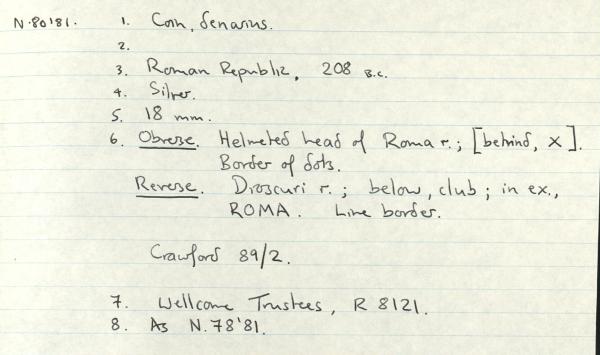 N.80'81. 1. Coin, denarius.
2.
3. Roman Republic, 208 B.C.
4. Silver.
5. 18 mm.
6. Obverse. Helmeted head of Roma r.; [behind, X].
Border of dots.
Reverse. Dioscuri r.; below, club; in ex.,
ROMA. Line border.
Crawford 89/2.
7. Wellcome Trustees, R 8121.
8. As N.78'81.